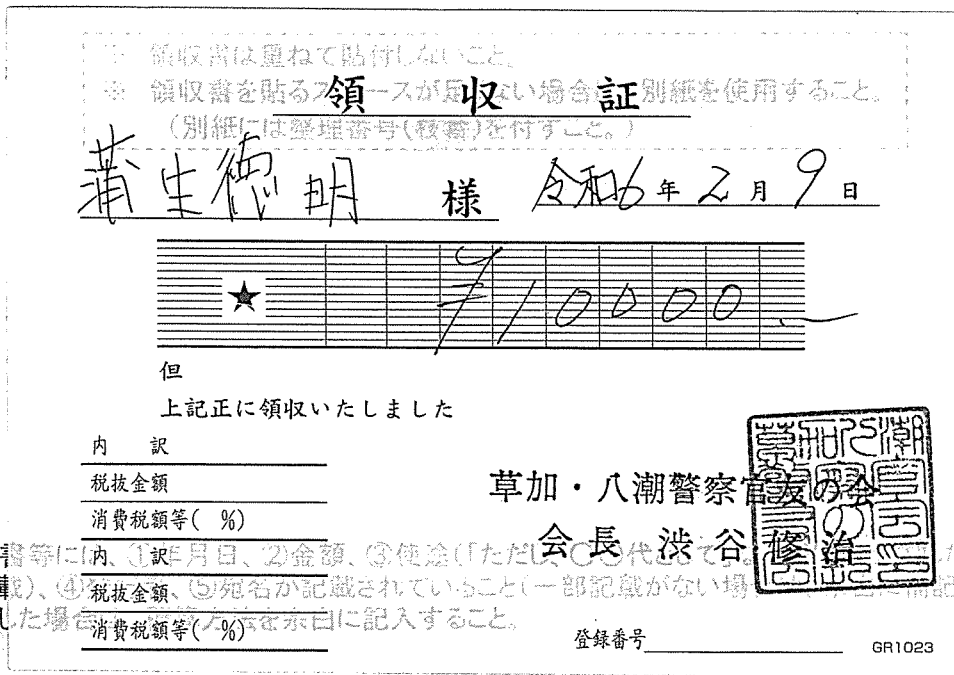 ※ 領収書は重ねて貼付しないこと。
※ 領収書を貼るスペースが足りない場合は、別紙を使用すること。
(別紙には整理番号(枝番)を付すこと。)
領収証
蒲生徳明 様 令和6年2月9日
★ ¥10000.-
但
上記正に領収いたしました
内訳
税抜金額
消費税額等( %)
内訳
税抜金額
消費税額等( %)
草加・八潮警察官友の会
会長 渋谷修治
書等には、①年月日、②金額、③使途(「ただし、〇〇代として
載)、④ ⑤宛名が記載されていること(一部記載がない場
した場合 方法を余白に記入すること。
登録番号
GR1023